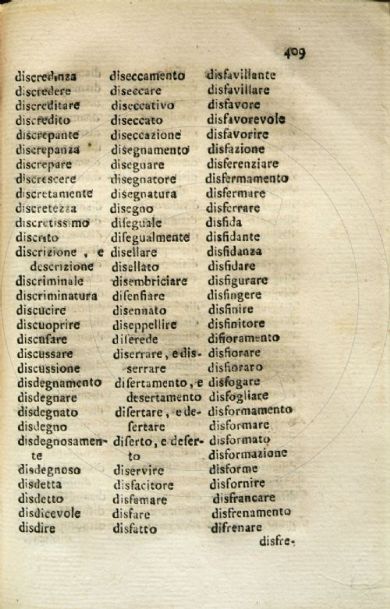 409
discredenza
discredere
discreditare
discredito
discrepante
discrepanza
discrepare
discrescere
discretamente
discretezza
discretissimo
discreto
discrizione, e
descrizione
discriminale
discriminatura
discucire
discuoprire
discusare
discussare
discussione
disdegnamento
disdegnare
disdegnato
disdegno
disdegnosamen-
te
disdegnoso
disdetta
disdetto
disdicevole
disdire
diseccamento
diseccare
diseccativo
diseccato
diseccazione
disegnamento
disegnare
disegnatore
disegnatura
disegno
diseguale
disegualmente
disellare
disellato
disembriciare
disenfiare
disennato
diseppellire
diserede
diserrare, e dis-
serrare
disertamento, e
desertamento
disertare, e de-
sertare
diserto, e deser-
to
diservire
disfacitore
disfamare
disfare
disfatto
disfavillante
disfavillare
disfavore
disfavorevole
disfavorire
disfazione
disferenziare
disfermamento
disfermare
disferrare
disfida
disfidante
disfidanza
disfidare
disfigurare
disfingere
disfinire
disfinitore
disfioramento
disfiorare
disfiorato
disfogare
disfogliare
disformamento
disformare
disformato
disformazione
disforme
disfornire
disfrancare
disfrenamento
disfrenare
disfre-